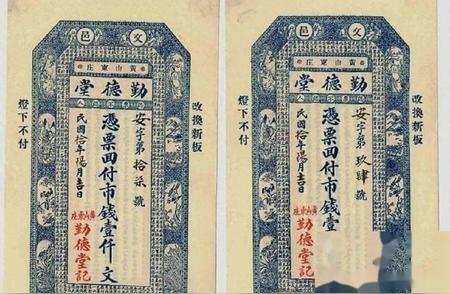 文邑
黄山東庄
勤德堂
改換新板
安字第拾柒號
憑票囬付市錢壹仟文
民國拾年陽月吉日
黄山東庄
勤德堂記
燈下不付
文邑
黄山東庄
勤德堂
改換新板
安字第玖肆號
憑票囬付市錢壹
民國拾年陽月吉日
黄山東庄
勤德堂記
燈下不付